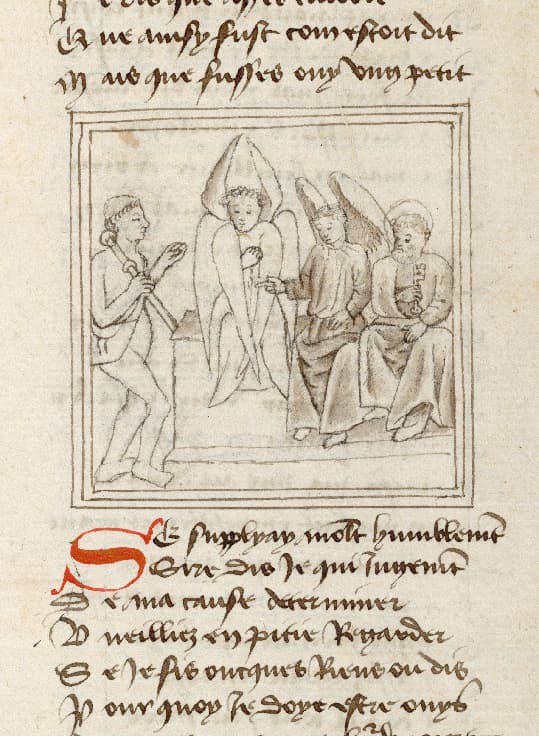 Que ainsy fust com estoit dit
Mais que fusses ouy ung petit
SE supplyay molt humblemt
Sire dis Je qui Jugemt
De ma cause determiner
Vueilliez en pitie Regarder
Se Je fis oncques Riens ou dis
Pour quoy Je doye estre ouys